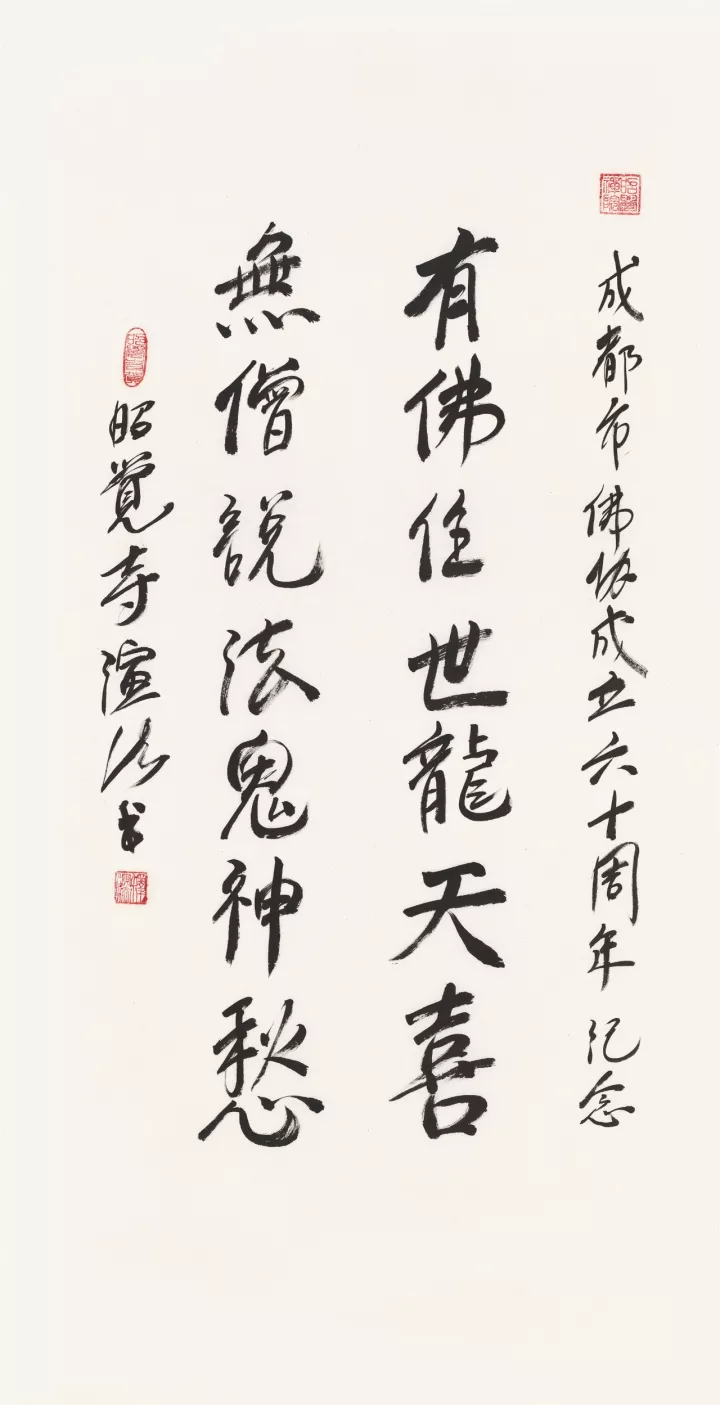 成都市佛协成立六十周年纪念
有佛住世龍天喜
無僧說法鬼神愁
昭覺寺演法书